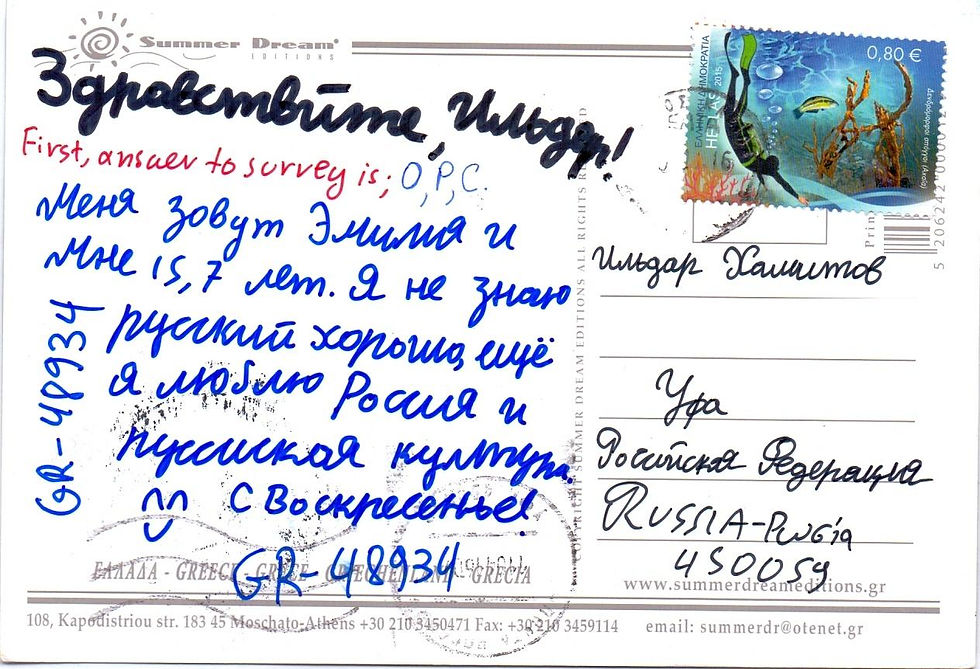 Summer Dream®
EDITIONS
Здравствйте, Ильдар!
First, answer to survey is; O, P, C.
Меня зовут Эмилия и
мне 15,7 лет. Я не знаю
русский хорошо, ещё
я люблю Россия и
русская культура.
С Воскресенье!
GR-48934
GR-48934
ΕΛΛΗΝΙΚΗ ΔΗΜΟΚΡΑΤΙΑ
HELLAS 2015
0,80 €
Ильдар Хамитов
Уфа
Российская Федерация
RUSSIA-Ρωσία
450059
ΕΛΛΑΔΑ - GREECE - GRÈCE - GRIECHENLAND - GRECIA
www.summerdreameditions.gr
108, Kapodistriou str. 183 45 Moschato-Athens +30 210 3450471 Fax: +30 210 3459114 email: summerdr@otenet.gr
COPYRIGHT SUMMER DREAM EDITIONS ALL RIGHTS RESERVED